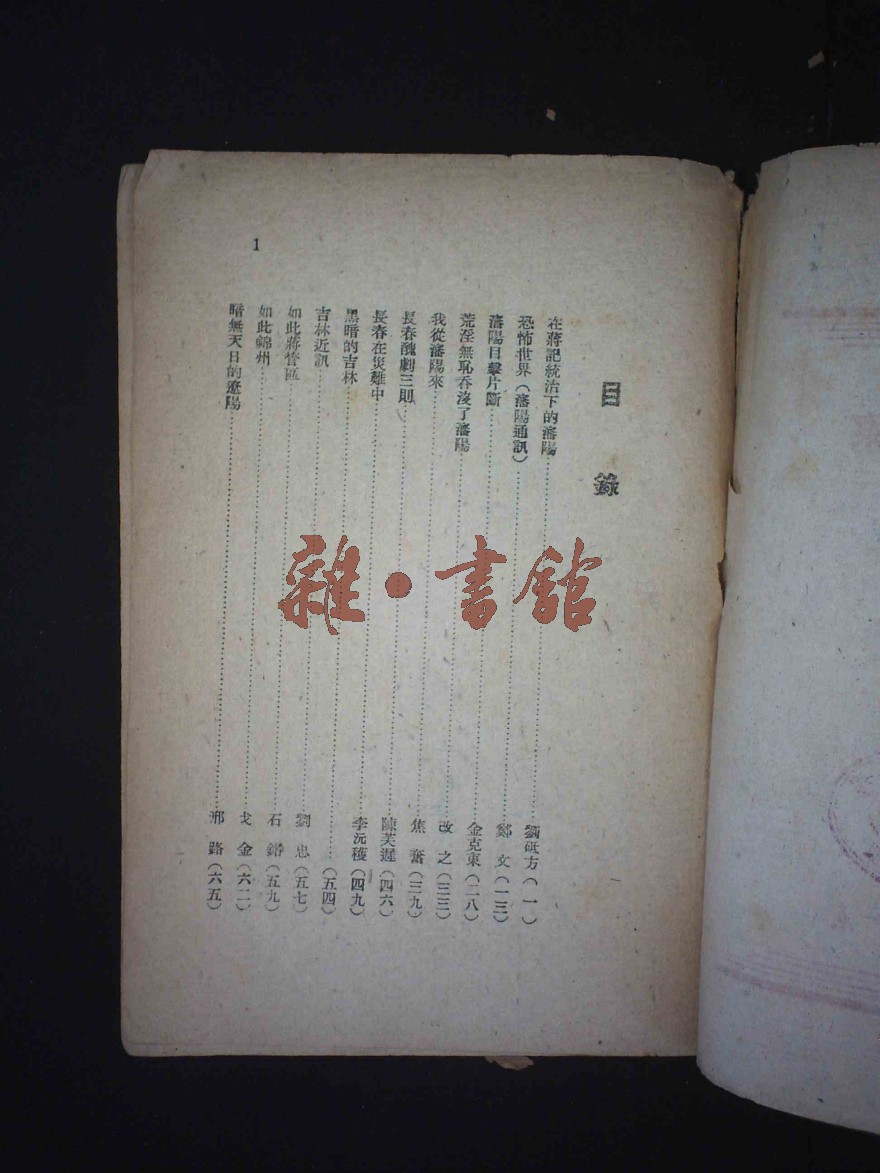 目錄
在蔣記統治下的瀋陽……劉砥方（一）
恐怖世界（瀋陽通訊）……鄭文（一三）
瀋陽目擊片斷……金克東（二八）
荒淫無恥吞沒了瀋陽……改之（三三）
我從瀋陽來……焦奮（三九）
長春醜劇三則……陳芙遲（四六）
長春在災難中……李沅穫（四九）
黑暗的吉林……（五四）
吉林近訊……劉忠（五七）
如此蔣管區……石（五九）
如此錦州……戈金（六二）
暗無天日的遼陽……邢路（六五）
1
雜·書館